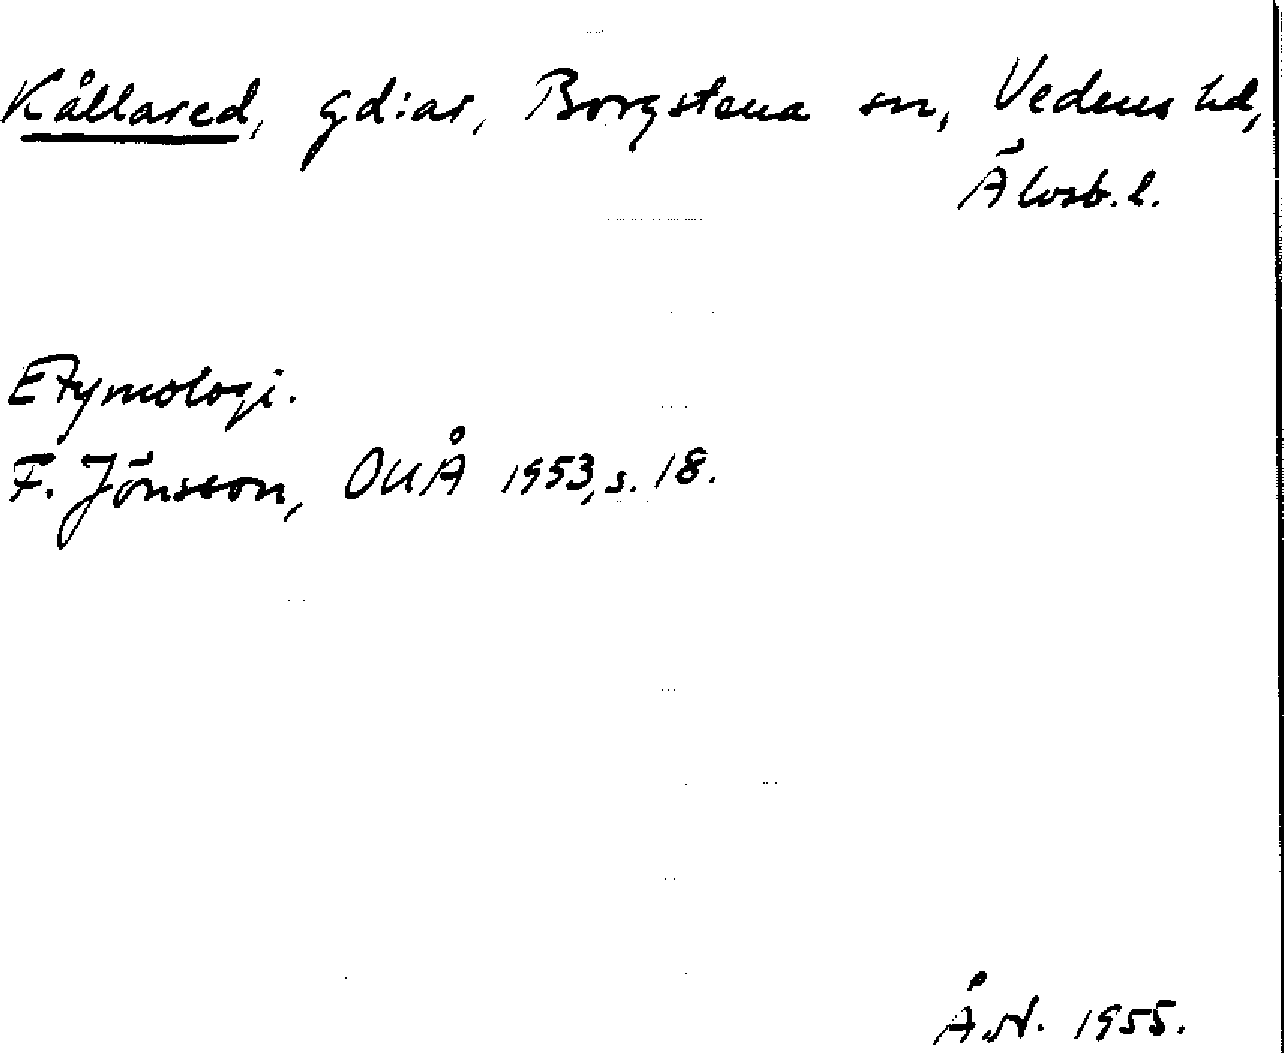 Kållared, gd:ar, Borgstena sn, Vedens hd,
Älvsb. l.
Etymologi.
F. Jönsson, OUÅ 1953, s. 18.
Å.N. 1955.